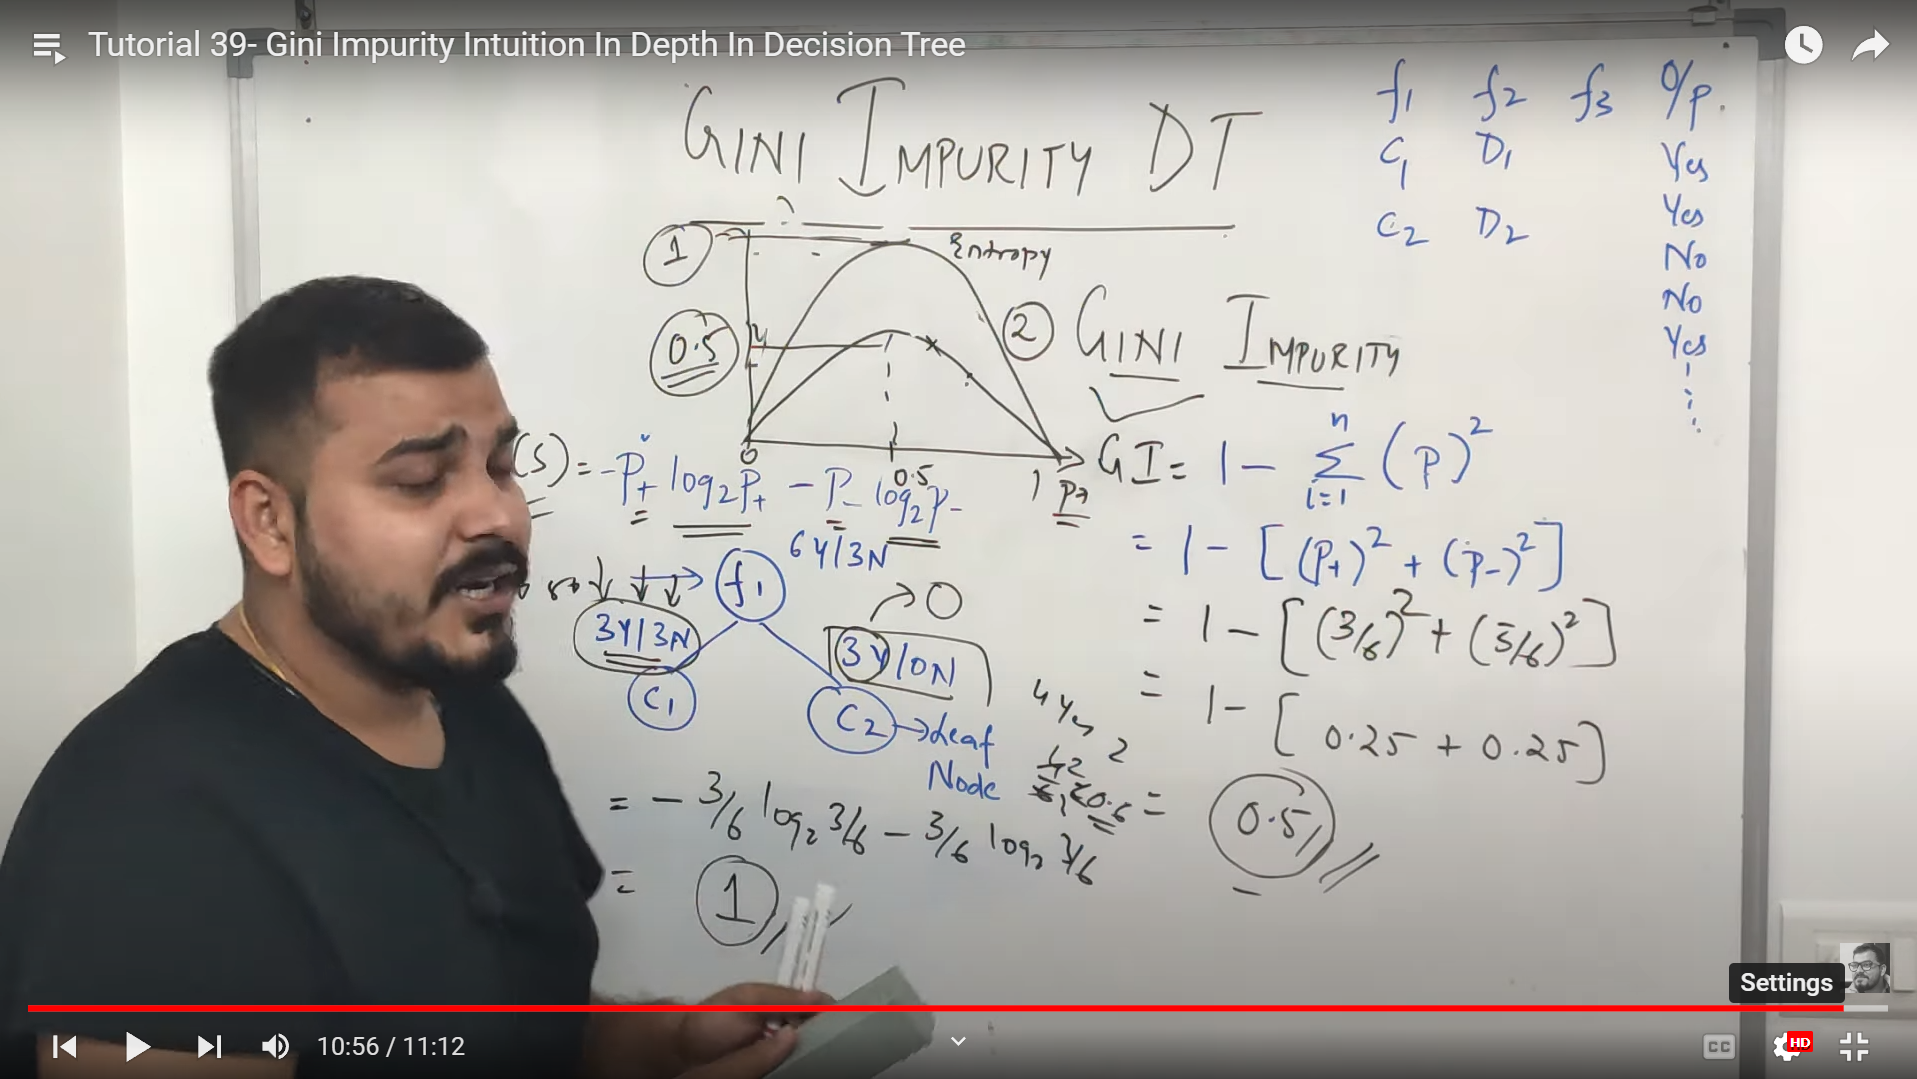 Tutorial 39- Gini Impurity Intuition In Depth In Decision Tree
GINI IMPURITY DT
f1 f2 f3 O/P.
C1 D1 Yes
Yes
C2 D2
No
No
Yes
1
Entropy
0.5
2 GINI IMPURITY
0 0.5 1 P+
(S) = -P+ log2P+ - P- log2P-
6Y/3N
f1
3Y/3N
0
3Y/0N
C1
C2 → Leaf Node
= - 3/6 log2 3/6 - 3/6 log2 3/6
= 1
GI = 1 - Σ (P)2
n
i=1
= 1 - [(P+)2 + (P-)2]
= 1 - [(3/6)2 + (3/6)2]
= 1 - [0.25 + 0.25]
= 0.5
4 Yes 2
Settings
10:56 / 11:12
CC
HD